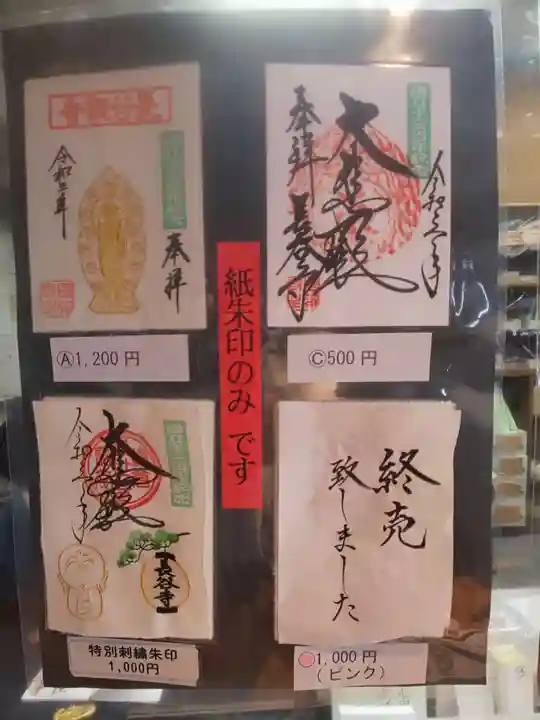 令和三年
奉拝
Ⓐ1,200円
奉拝
大悲殿
長谷寺
令和三年
Ⓒ500円
紙朱印のみです
大悲殿
令和三年
長谷寺
特別刺繍朱印
1,000円
終売
致しました
1,000円
(ピンク)